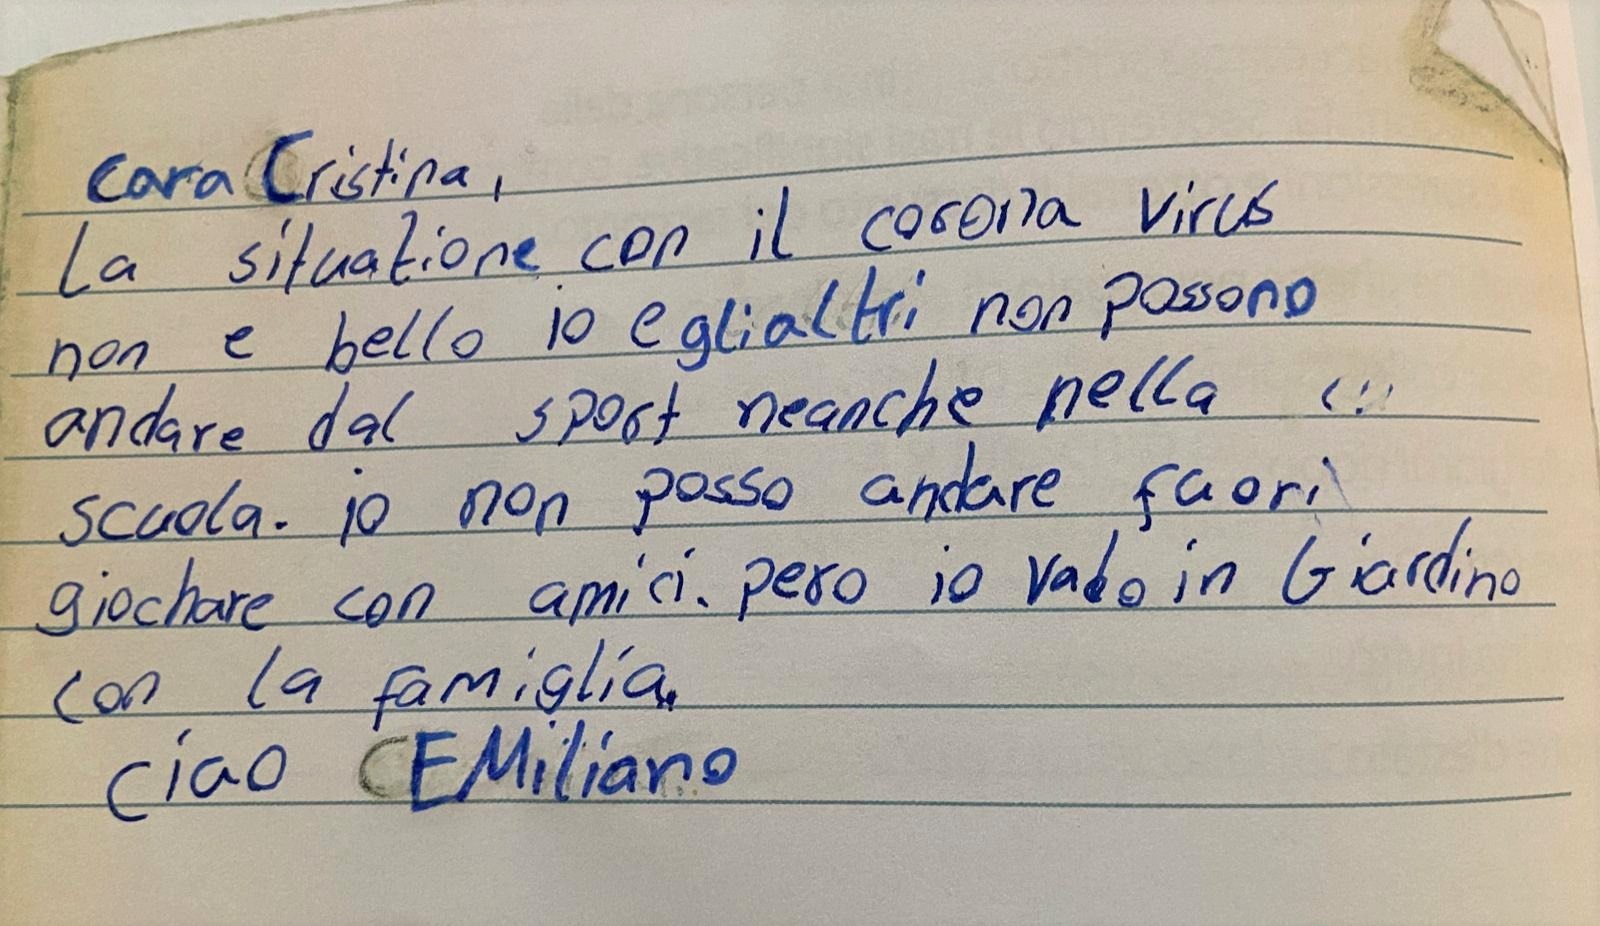 cara Cristina,
La situatione con il corona virus
non e bello io e glialtri non possono
andare dal sport neanche nella
scuola. io non posso andare fuori
giochare con amici. pero io vado in Giardino
con la famiglia.
ciao EMiliano